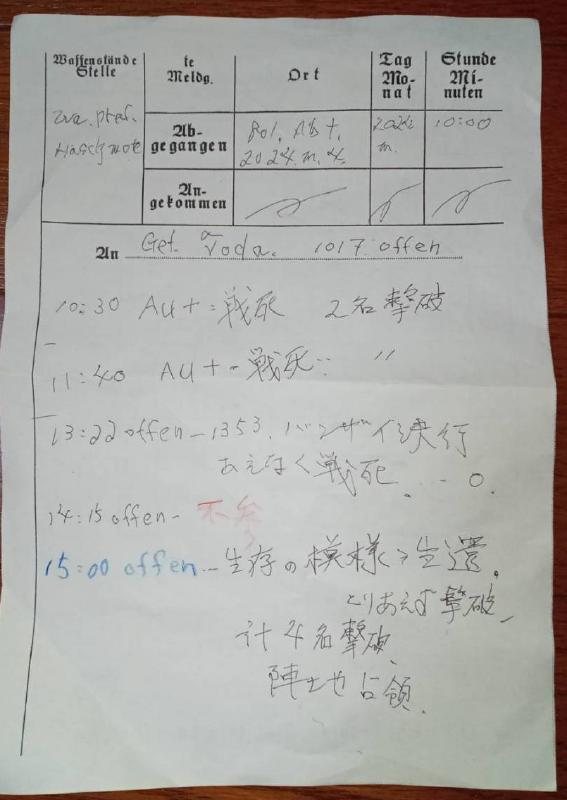 Waffenstände Stelle
te Meldg.
Ort
Tag Monat
Stunde Minuten
Abgegangen
10:00
Angekommen
An Get. Toda. 1017 offen
10:30 Aut = 戦死 2名撃破
11:40 Aut - 戦死 : 〃
13:22 offen - 1353. バンザイ決行
あえなく戦死. - - 0.
14:15 offen - 不参
15:00 offen - 生存の模様 > 生還.
とりあえず撃破
計4名撃破、
陣地占領.